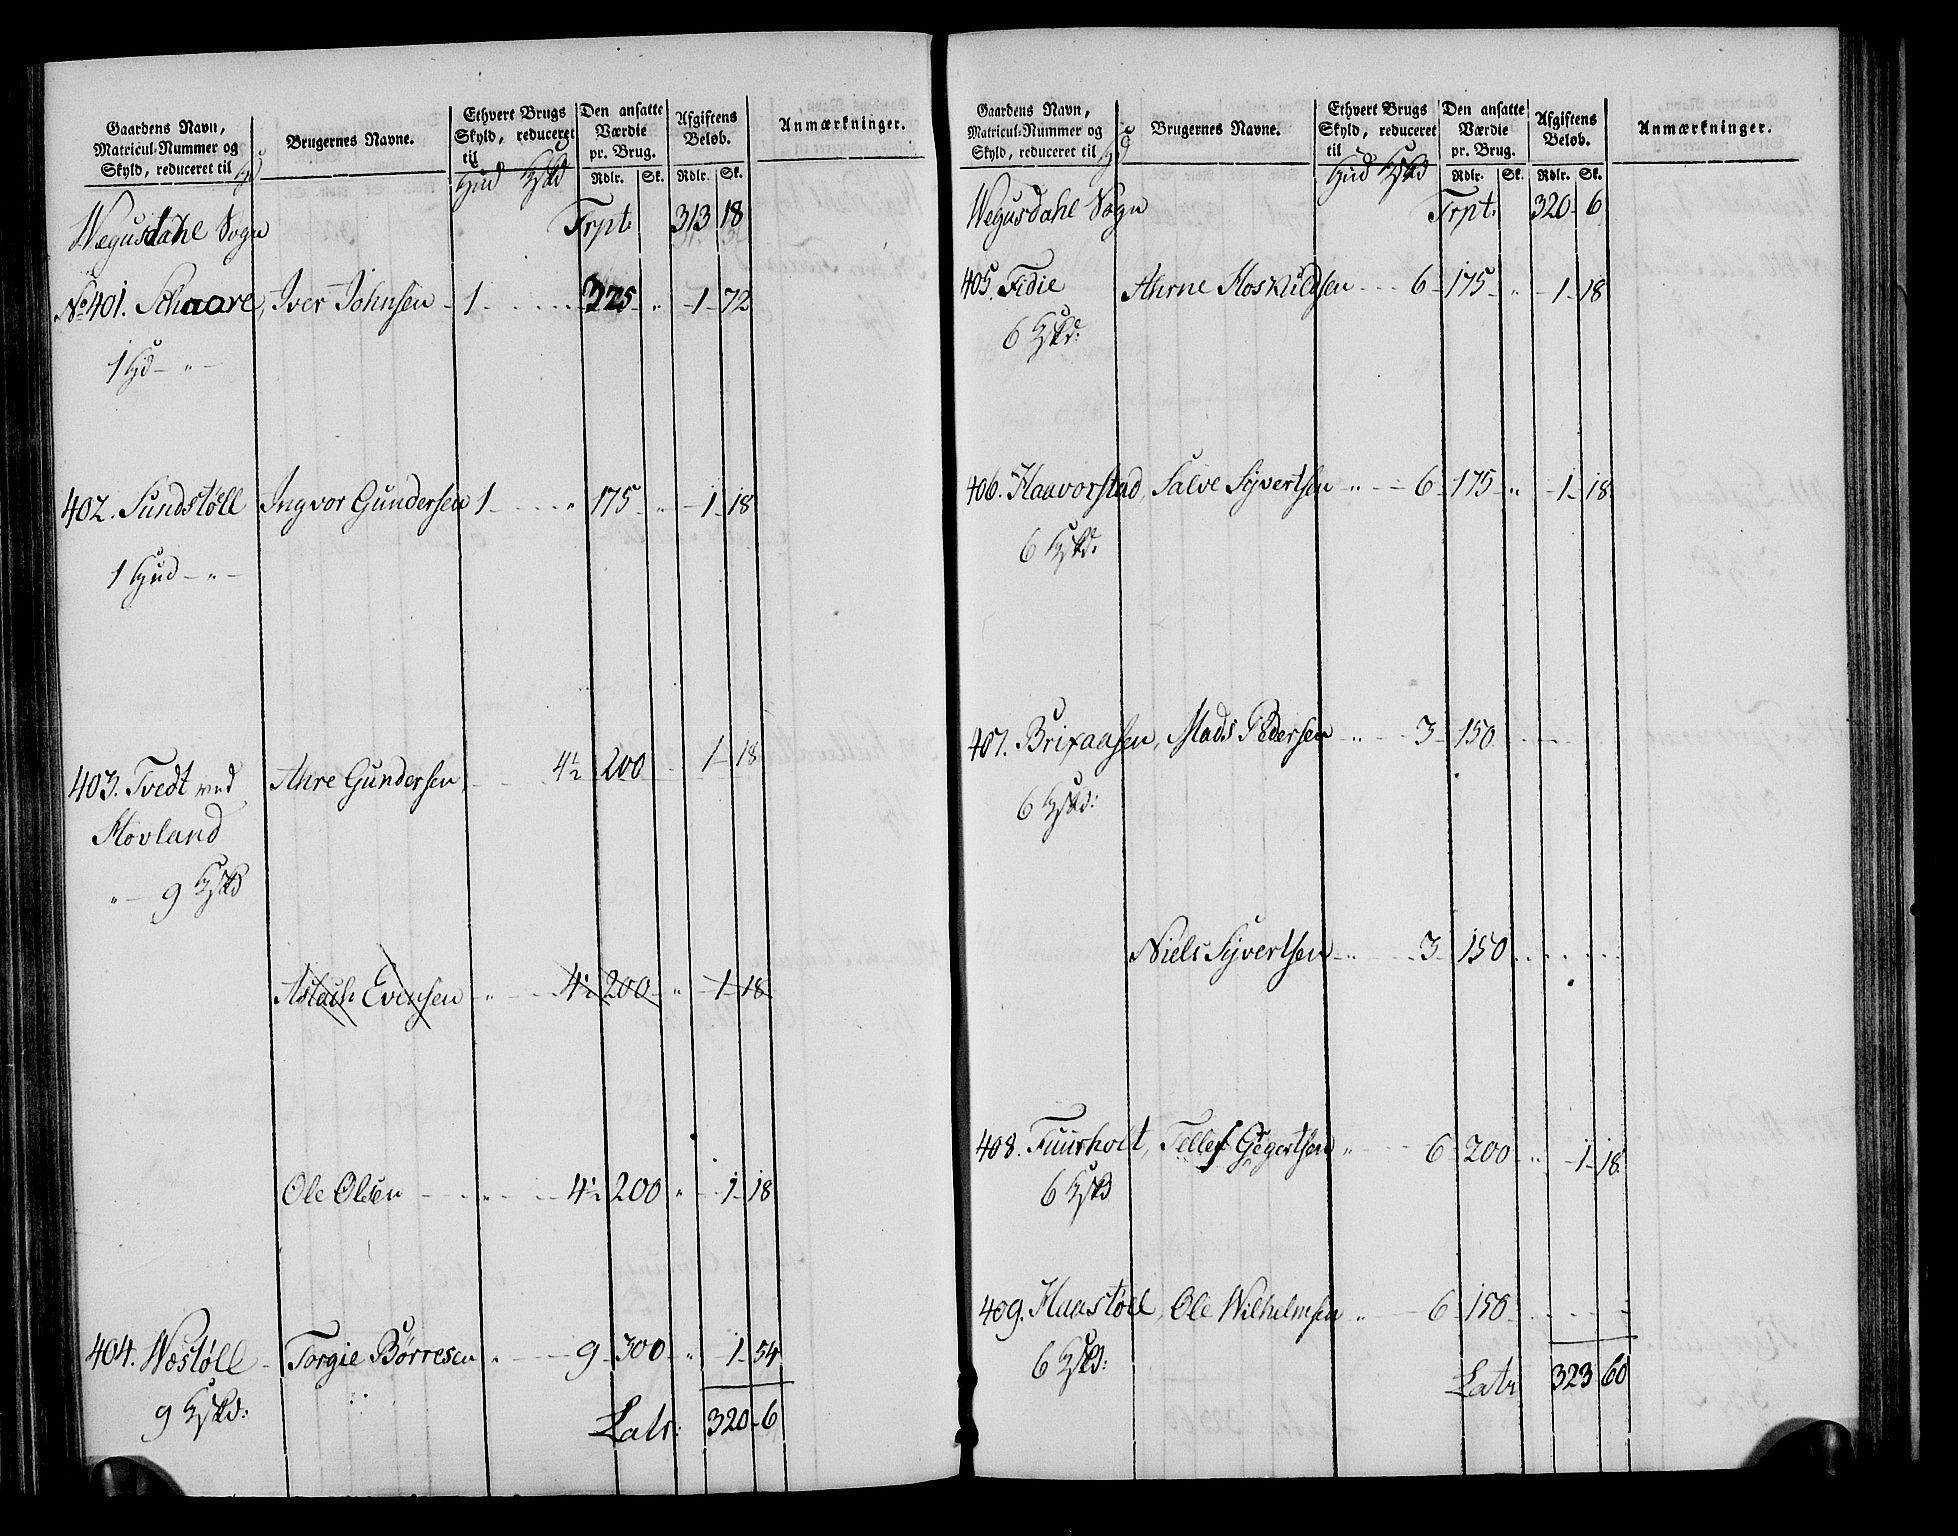 Gaardens Navn,
Matricul-Nummer og
Skyld, reduceret til
Brugernes Navne.
Ethvert Brugs
Skyld, reduceret
til
Hud
Den ansatte
Værdie
pr. Brug.
Rdlr. Sk.
Afgiftens
Beløb.
Rdlr. Sk.
Anmærkninger.
Wegusdahl Sogn Trpt: 313 18
No 401. Schaare, Iver Johnsen 1 325 " 1 72
1 Hd - " -
402. Sundstøll Ingvor Gundersen 1 " 175 " 1 18
1 Hud - " -
403. Tvedt ved Ahre Gundersen 4½ 200 1 18
Hovland
" - 9
Aslach Evensen " 4½ 200 " 1 18
Ole Olsen " 4½ 200 " 1 18
404. Westøll Torgie Børresen " 9 300 " 1 54
9
Latr: 320 6
Gaardens Navn,
Matricul-Nummer og
Skyld, reduceret til
Brugernes Navne.
Ethvert Brugs
Skyld, reduceret
til
Hud
Den ansatte
Værdie
pr. Brug.
Rdlr. Sk.
Afgiftens
Beløb.
Rdlr. Sk.
Anmærkninger.
Wegusdahl Sogn Trpt: 320 6
405. Fidie Ahrne Hoskildsen 6 175 " 1 18
6
406. Haavorstad, Salve Syvertsen " 6 175 " 1 18
6
407. Brixaasen, Mads Pedersen " 3 150
6
Niels Syvertsen " 3 150
408. Fuurholt, Tellef Gegertsen " 6 200 " 1 18
6
409. Haastøll, Ole Wilhelmsen " 6 150
6
Latr 323 60